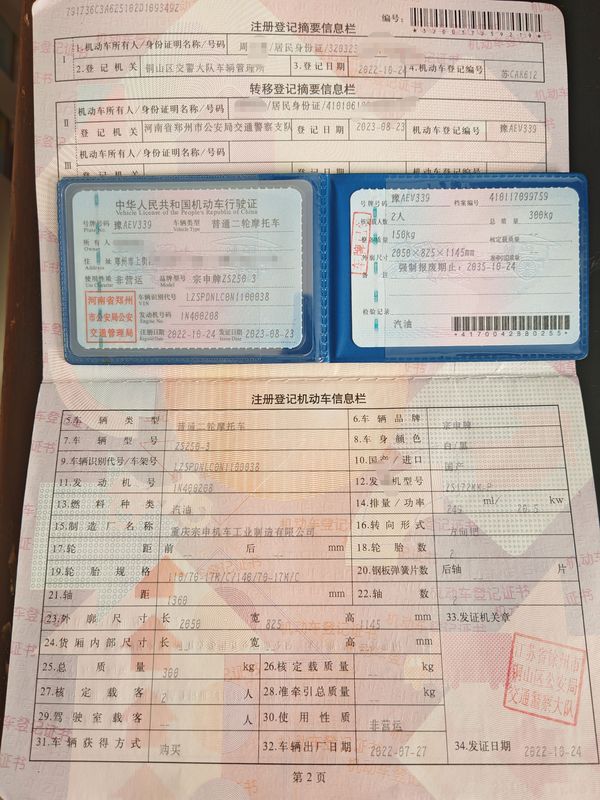 791736C3A625102D1693492
编号:
注册登记摘要信息栏
Ⅰ
1.机动车所有人/身份证明名称/号码 周 /居民身份证/320323
2.登记机关 铜山区交警大队车辆管理所 3.登记日期 2022-10-24 4.机动车登记编号 苏CAK612
转移登记摘要信息栏
Ⅱ
机动车所有人/身份证明名称/号码 /居民身份证/410106
登记机关 河南省郑州市公安局交通警察支队 登记日期 2023-08-23 机动车登记编号 豫AEV339
Ⅲ
机动车所有人/身份证明名称/号码
中华人民共和国机动车行驶证
Vehicle License of the People's Republic of China
号牌号码 豫AEV339 车辆类型 普通二轮摩托车
Plate No. Vehicle Type
所有人
Owner
住址 郑州市上街
Address
使用性质 非营运 品牌型号 宗申牌ZS250-3
Use Character Model
河南省郑州市公安局公安交通管理局
车辆识别代号 LZSPDNLC0N1100038
VIN
发动机号码 1N400208
Engine No.
注册日期 2022-10-24 发证日期 2023-08-23
号牌号码 豫AEV339 档案编号 410117099759
核定载人数 2人 总质量 300kg
整备质量 150kg 核定载质量
外廓尺寸 2050×825×1145mm
备注 强制报废期止:2035-10-24
检验记录
汽油
*4170042880255*
注册登记机动车信息栏
5.车辆类型 普通二轮摩托车 6.车辆品牌 宗申牌
7.车辆型号 ZS250-3 8.车身颜色 白/黑
9.车辆识别代号/车架号 LZSPDNLC0N1100038 10.国产/进口 国产
11.发动机号 1N400208 12.发 机型号
13.燃料种类 汽油 14.排量/功率 ml/ kw
15.制造厂名称 重庆宗申机车工业制造有限公司 16.转向形式 方向把
17.轮距 前 后 mm 18.轮胎数 2
19.轮胎规格 110/70-17M/C/140/70-17M/C 20.钢板弹簧片数 后轴 片
21.轴距 1360 mm 22.轴数
23.外廓尺寸 长 2050 宽 825 高 1145 mm 33.发证机关章
24.货厢内部尺寸 长 宽 高 mm
25.总质量 300 kg 26.核定载质量 kg
27.核定载客 2 人 28.准牵引总质量 kg
29.驾驶室载客 人 30.使用性质 非营运
江苏省徐州市铜山区公安局交通警察大队
31.车辆获得方式 购买 32.车辆出厂日期 2022-07-27 34.发证日期 2022-10-24
第2页